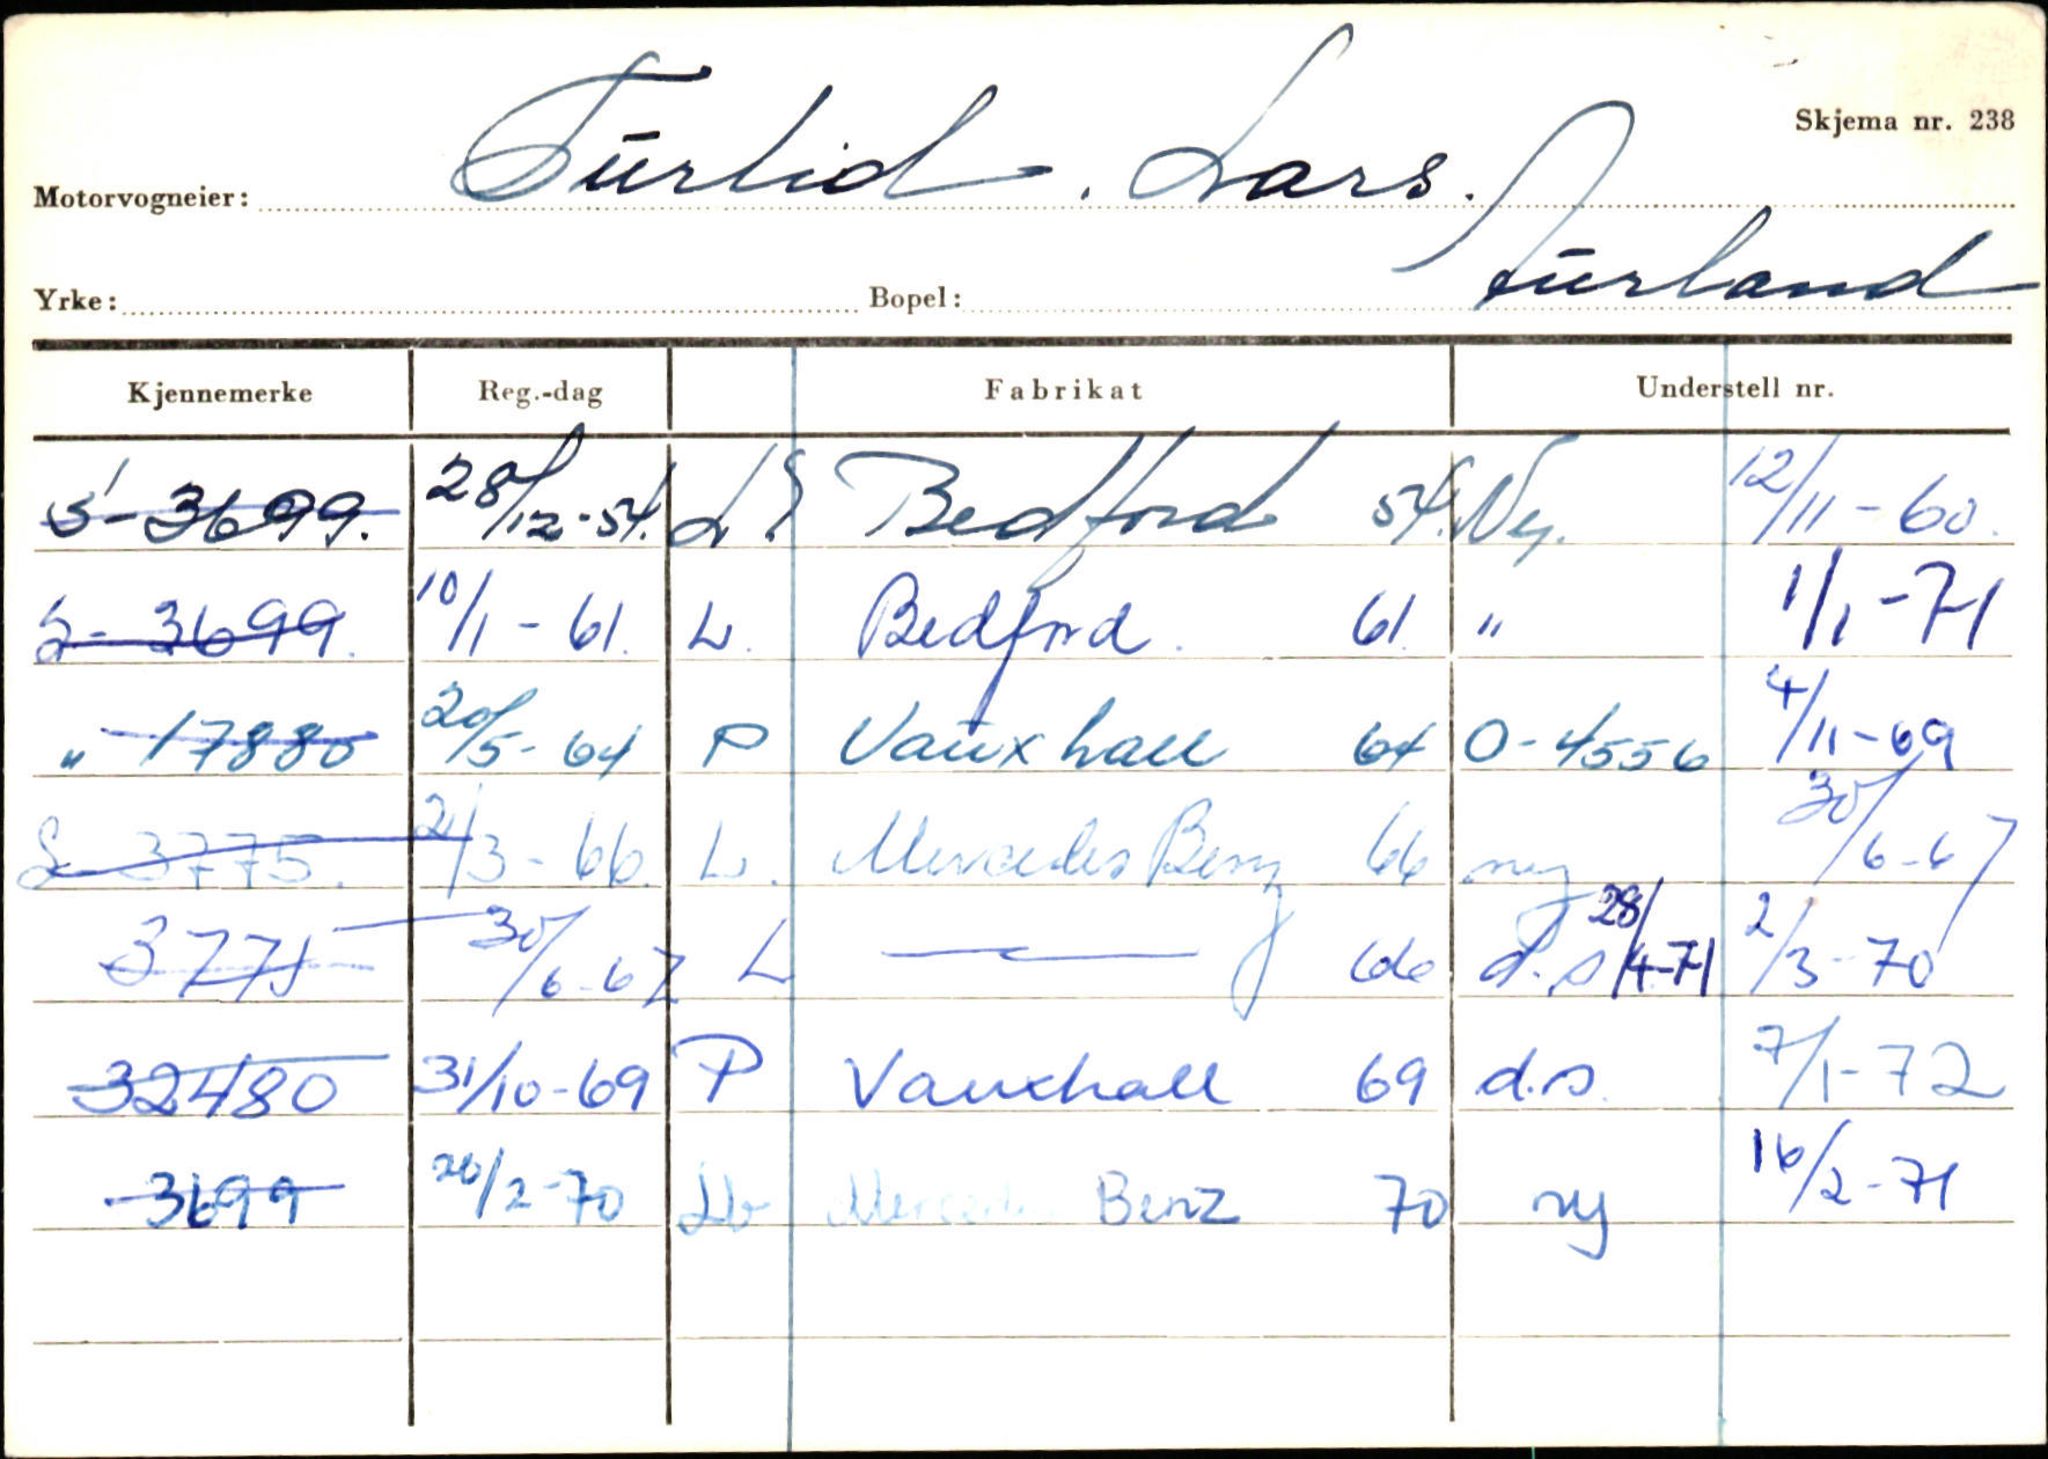 Skjema nr. 238
Motorvogneier: Turlid. Lars.
Yrke: Bopel: Aurland
Kjennemerke Reg.-dag Fabrikat Understell nr.
S-3699. 28/12-54. L Bedford 54. Ny. 12/11-60.
S-3699. 10/1-61. L. Bedford. 61. " 1/1-71
" -17880 20/5-64 P Vauxhall 64 O-4556 4/11-69
S 3775. 2/3-66. L. Mercedes Benz 66 ny 30/6-67
3775 30/6-67 L — 66 d.s 28/4-71 2/3-70
32480 31/10-69 P Vauxhall 69 d.s. 7/1-72
-3699 26/2-70 Lb Mercedes Benz 70 ny 16/2-71